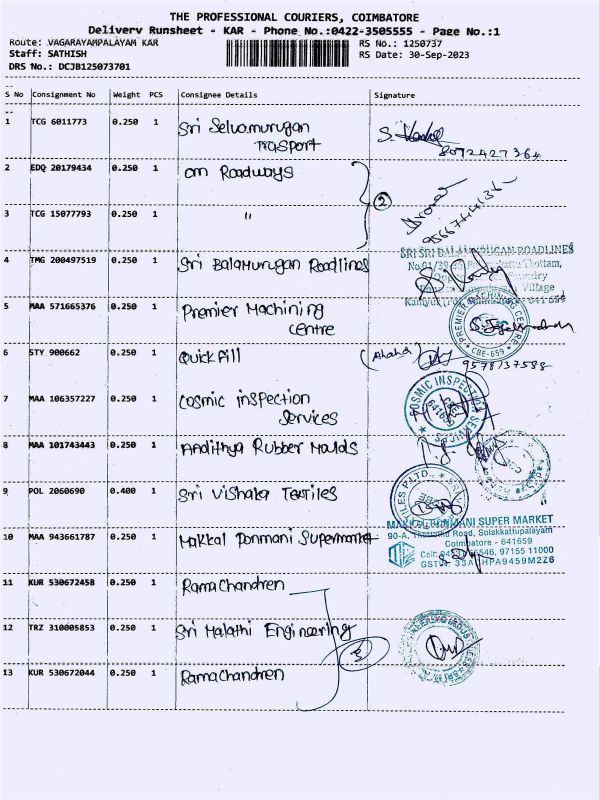 THE PROFESSIONAL COURIERS, COIMBATORE
Delivery Runsheet - KAR - Phone No.:0422-3505555 - Page No.:1
Route: VAGARAYAMPALAYAM KAR
RS No.: 1250737
Staff: SATHISH
RS Date: 30-Sep-2023
DRS No.: DCJB125073701
S No Consignment No Weight PCS Consignee Details Signature
1 TCG 6011773 0.250 1 Sri Selvamurugan
Trasport
8072427364
2 EDQ 20179434 0.250 1 Om Roadways
2
3 TCG 15077793 0.250 1 "
4 TMG 200497519 0.250 1 Sri Balamurugan Roadlines
SRI SRI BALAMURUGAN ROADLINES
Thottam,
Village
641 659
5 MAA 571665376 0.250 1 Premier Machining
Centre
PREMIER MACHINING CENTRE
CBE-659
6 STY 900662 0.250 1 Quick Pill
9578137588
7 MAA 106357227 0.250 1 Cosmic inspection
Services
COSMIC INSPECTION SERVICES
8 MAA 101743443 0.250 1 Andithya Rubber Moulds
9 POL 2060690 0.400 1 Sri Vishaka Textiles
10 MAA 943661787 0.250 1 Makkal Ponmani Supermarket
MAKKAL PONMANI SUPER MARKET
90-A, Thottathu Road, Solakkattupalayam
Coimbatore - 641659
97155 11000
11 KUR 530672458 0.250 1 Rama Chandren
12 TRZ 310005853 0.250 1 Sri Malathi Engineering
3
13 KUR 530672044 0.250 1 Rama Chandren